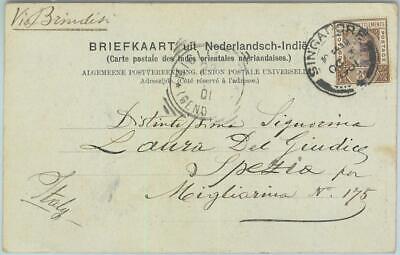 Via Brindisi
BRIEFKAART uit Nederlandsch-Indië
(Carte postale des Indes orientales néerlandaises.)
ALGEMEENE POSTVEREENIGING (UNION POSTALE UNIVERSELLE)
Adreszijde. (Côté réservé à l'adresse.)
SINGAPORE
SETTLEMENTS
POSTAGE
01
Distintissima Signorina
Laura Del Giudice
Spezia per
Migliarina N. 175
Italy